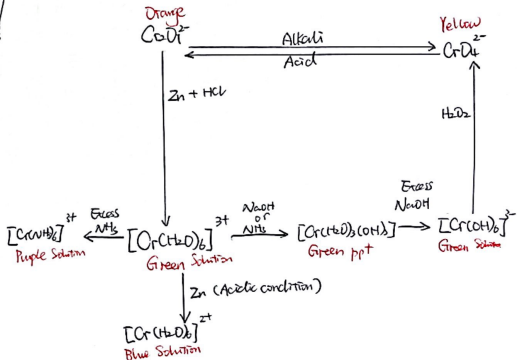 Orange
Cr2O7^2-
Yellow
CrO4^2-
Alkali
Acid
Zn + HCl
H2O2
[Cr(NH3)6]^3+
Purple Solution
Excess
NH3
[Cr(H2O)6]^3+
Green Solution
NaOH
or
NH3
[Cr(H2O)3(OH)3]
Green ppt
Excess
NaOH
[Cr(OH)6]^3-
Green Solution
Zn (Acidic condition)
[Cr(H2O)6]^2+
Blue Solution